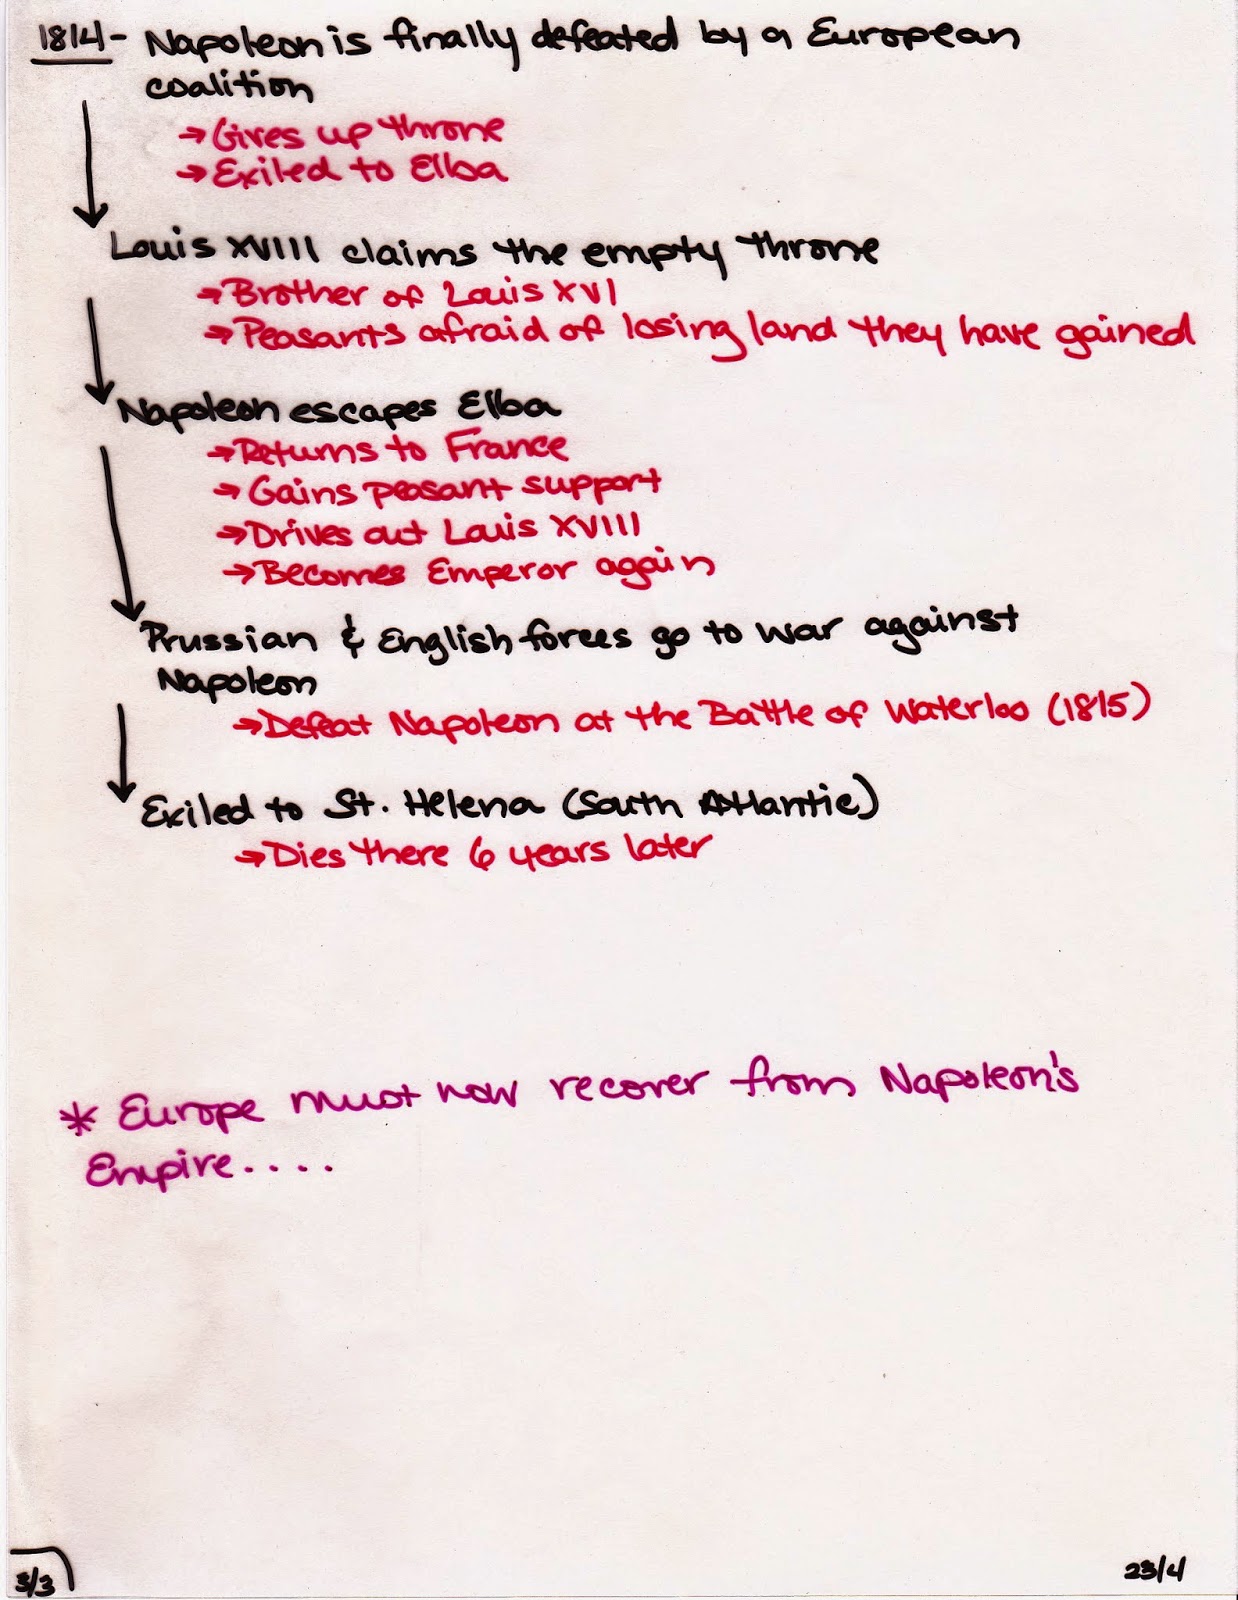 1814- Napoleon is finally defeated by a European
coalition
→Gives up throne
→Exiled to Elba
Louis XVIII claims the empty throne
→Brother of Louis XVI
→Peasants afraid of losing land they have gained
Napoleon escapes Elba
→Returns to France
→Gains peasant support
→Drives out Louis XVIII
→Becomes Emperor again
Prussian & English forces go to war against
Napoleon
→Defeat Napoleon at the Battle of Waterloo (1815)
Exiled to St. Helena (South Atlantic)
→Dies there 6 years later
* Europe must now recover from Napoleon's
Empire....
3/3
23/4